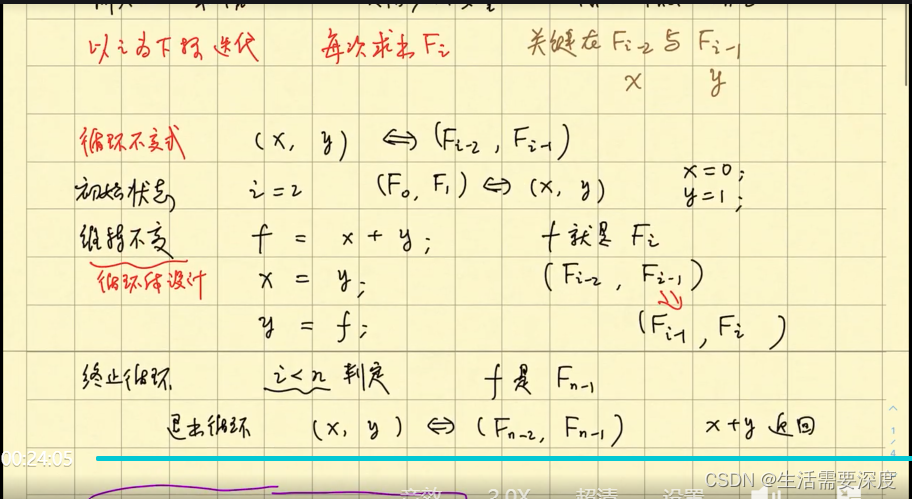 以i为下标迭代 每次求出F_i 关键在F_{i-2}与F_{i-1}
x y
循环不变式 (x, y) ⇔ (F_{i-2}, F_{i-1})
初始状态 i=2 (F_0, F_1) ⇔ (x, y) x=0;
y=1;
维持不变 f = x + y; f就是F_i
循环体设计 x = y; (F_{i-2}, F_{i-1})
y = f; (F_{i-1}, F_i )
终止循环 i<n 判定 f是 F_{n-1}
退出循环 (x, y) ⇔ (F_{n-2}, F_{n-1}) x+y 返回
1
/
4
00:24:05
音效 2.0X 超清 设置
CSDN @生活需要深度